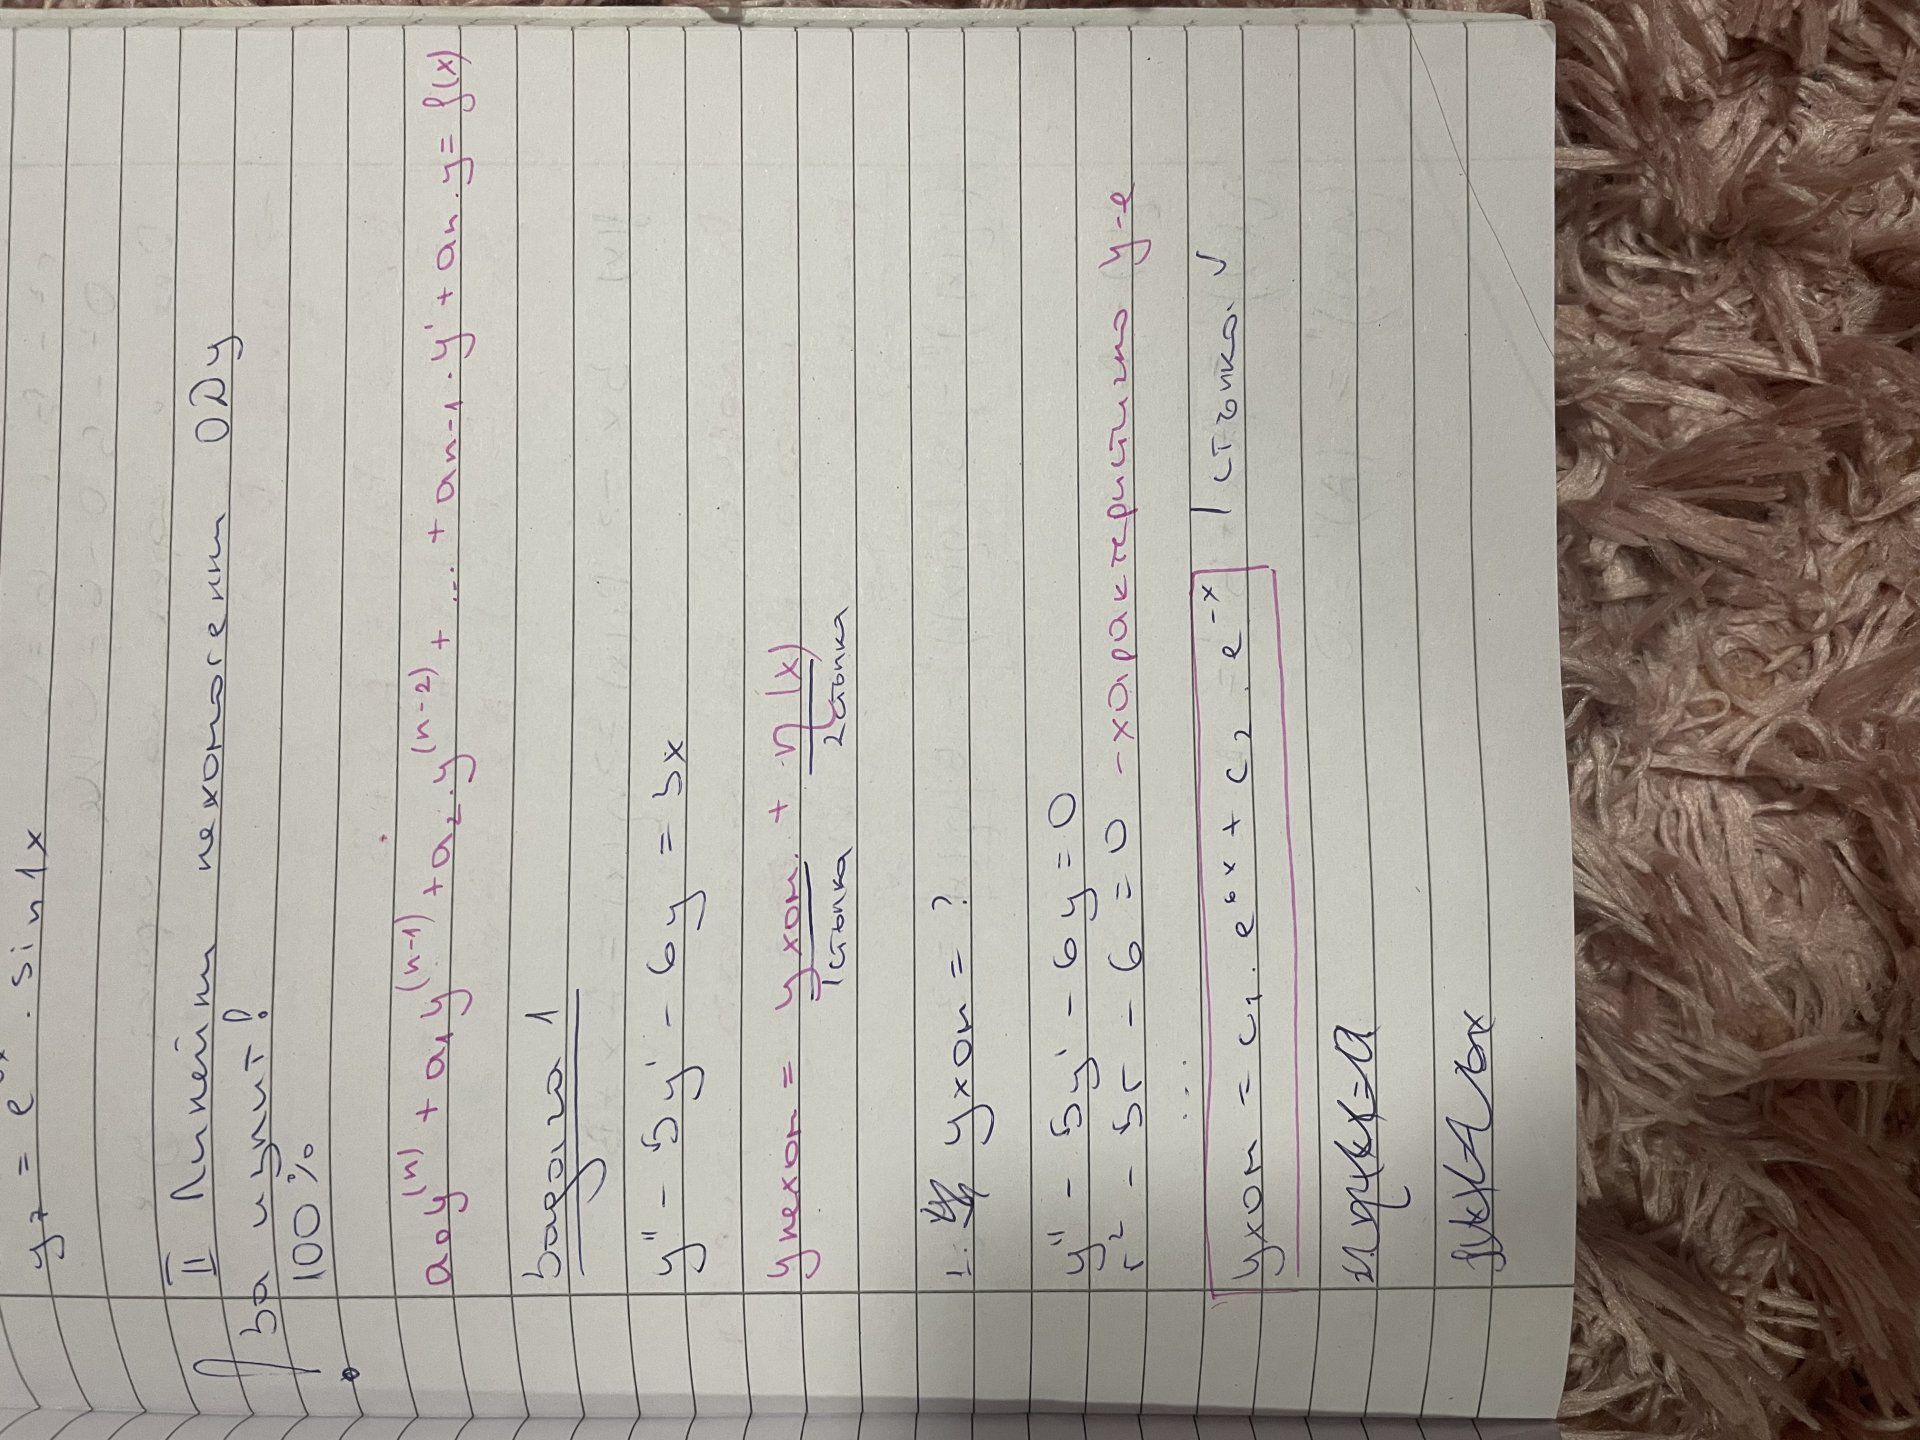 y₂ = e · sin 1x
II Линейни нехомогенни ОДУ
За изпит!
100%
a₀y⁽ⁿ⁾ + a₁y⁽ⁿ⁻¹⁾ + a₂·y⁽ⁿ⁻²⁾ + ... + aₙ₋₁·y' + aₙ·y = f(x)
Задача 1
y'' - 5y' - 6y = 5x
yнехом = yхом. + η(x)
1 стъпка 2 стъпка
1. yхом = ?
y'' - 5y' - 6y = 0
r² - 5r - 6 = 0 - характеристично у-е
...
yхом = c₁·e⁶ˣ + c₂·e⁻ˣ | стъпка √